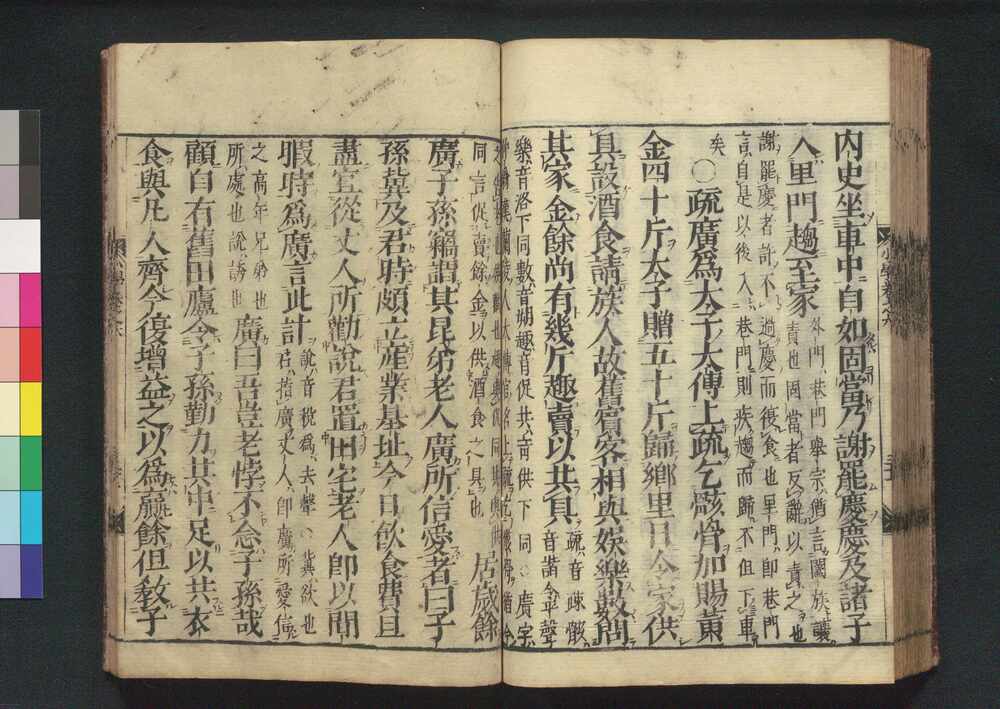 内史坐車中自如固當乃謝罷慶慶及諸子
入里門趨至家
外門巷門擧宗猶言闔族讓
責也固當者反辭以責之也
謝罷慶者許不過慶而復食也里門卽巷門
言自是以後入巷門則疾趨而歸不但下車
矣
○疏廣爲太子太傅上疏乞骸骨加賜黃
金四十斤太子贈五十斤歸鄉里日令家供
具設酒食請族人故舊賓客相與娛樂數問
其家金餘尚有幾斤趣賣以共具
疏音疎骸
音諧令平聲
樂音洛下同數音朔趣音促共音供下同○廣字
同言促賣餘金以供酒食之具也
居歲餘
廣子孫竊謂其昆弟老人廣所信愛者曰子
孫冀及君時頗立產業基址今日飮食費且
盡宜從丈人所勸說君置田宅老人卽以閒
暇時爲廣言此計
說音稅爲去聲○冀欲也
君指廣丈人卽廣所愛信
之高年兄弟也
所處也說誘也
廣曰吾豈老悖不念子孫哉
顧自有舊田廬令子孫勤力其中足以共衣
食與凡人齊今復增益之以爲贏餘但教子